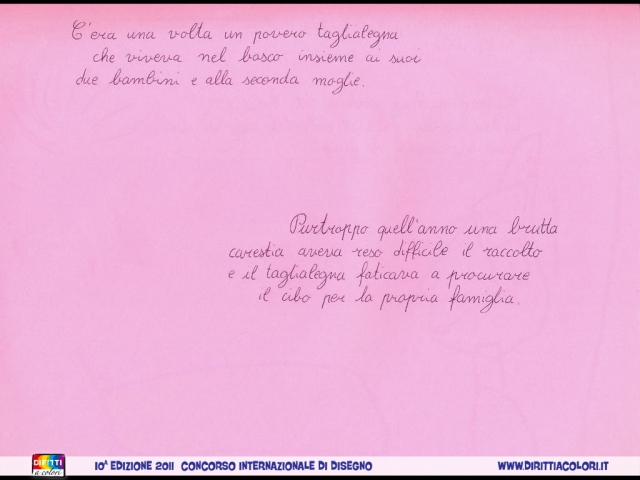 C'era una volta un povero taglialegna
che viveva nel bosco insieme ai suoi
due bambini e alla seconda moglie.
Purtroppo quell'anno una brutta
carestia aveva reso difficile il raccolto
e il taglialegna faticava a procurare
il cibo per la propria famiglia.
DIRITTI
a colori
10ª EDIZIONE 2011 CONCORSO INTERNAZIONALE DI DISEGNO
WWW.DIRITTIACOLORI.IT